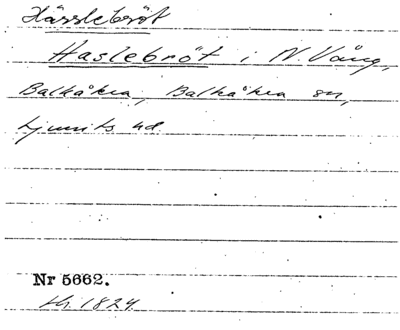 Hässlebröt
Haslebröt i N. Vång,
Balkåkra, Balkåkra sn,
Ljunits hd.
Nr 5662.
1824